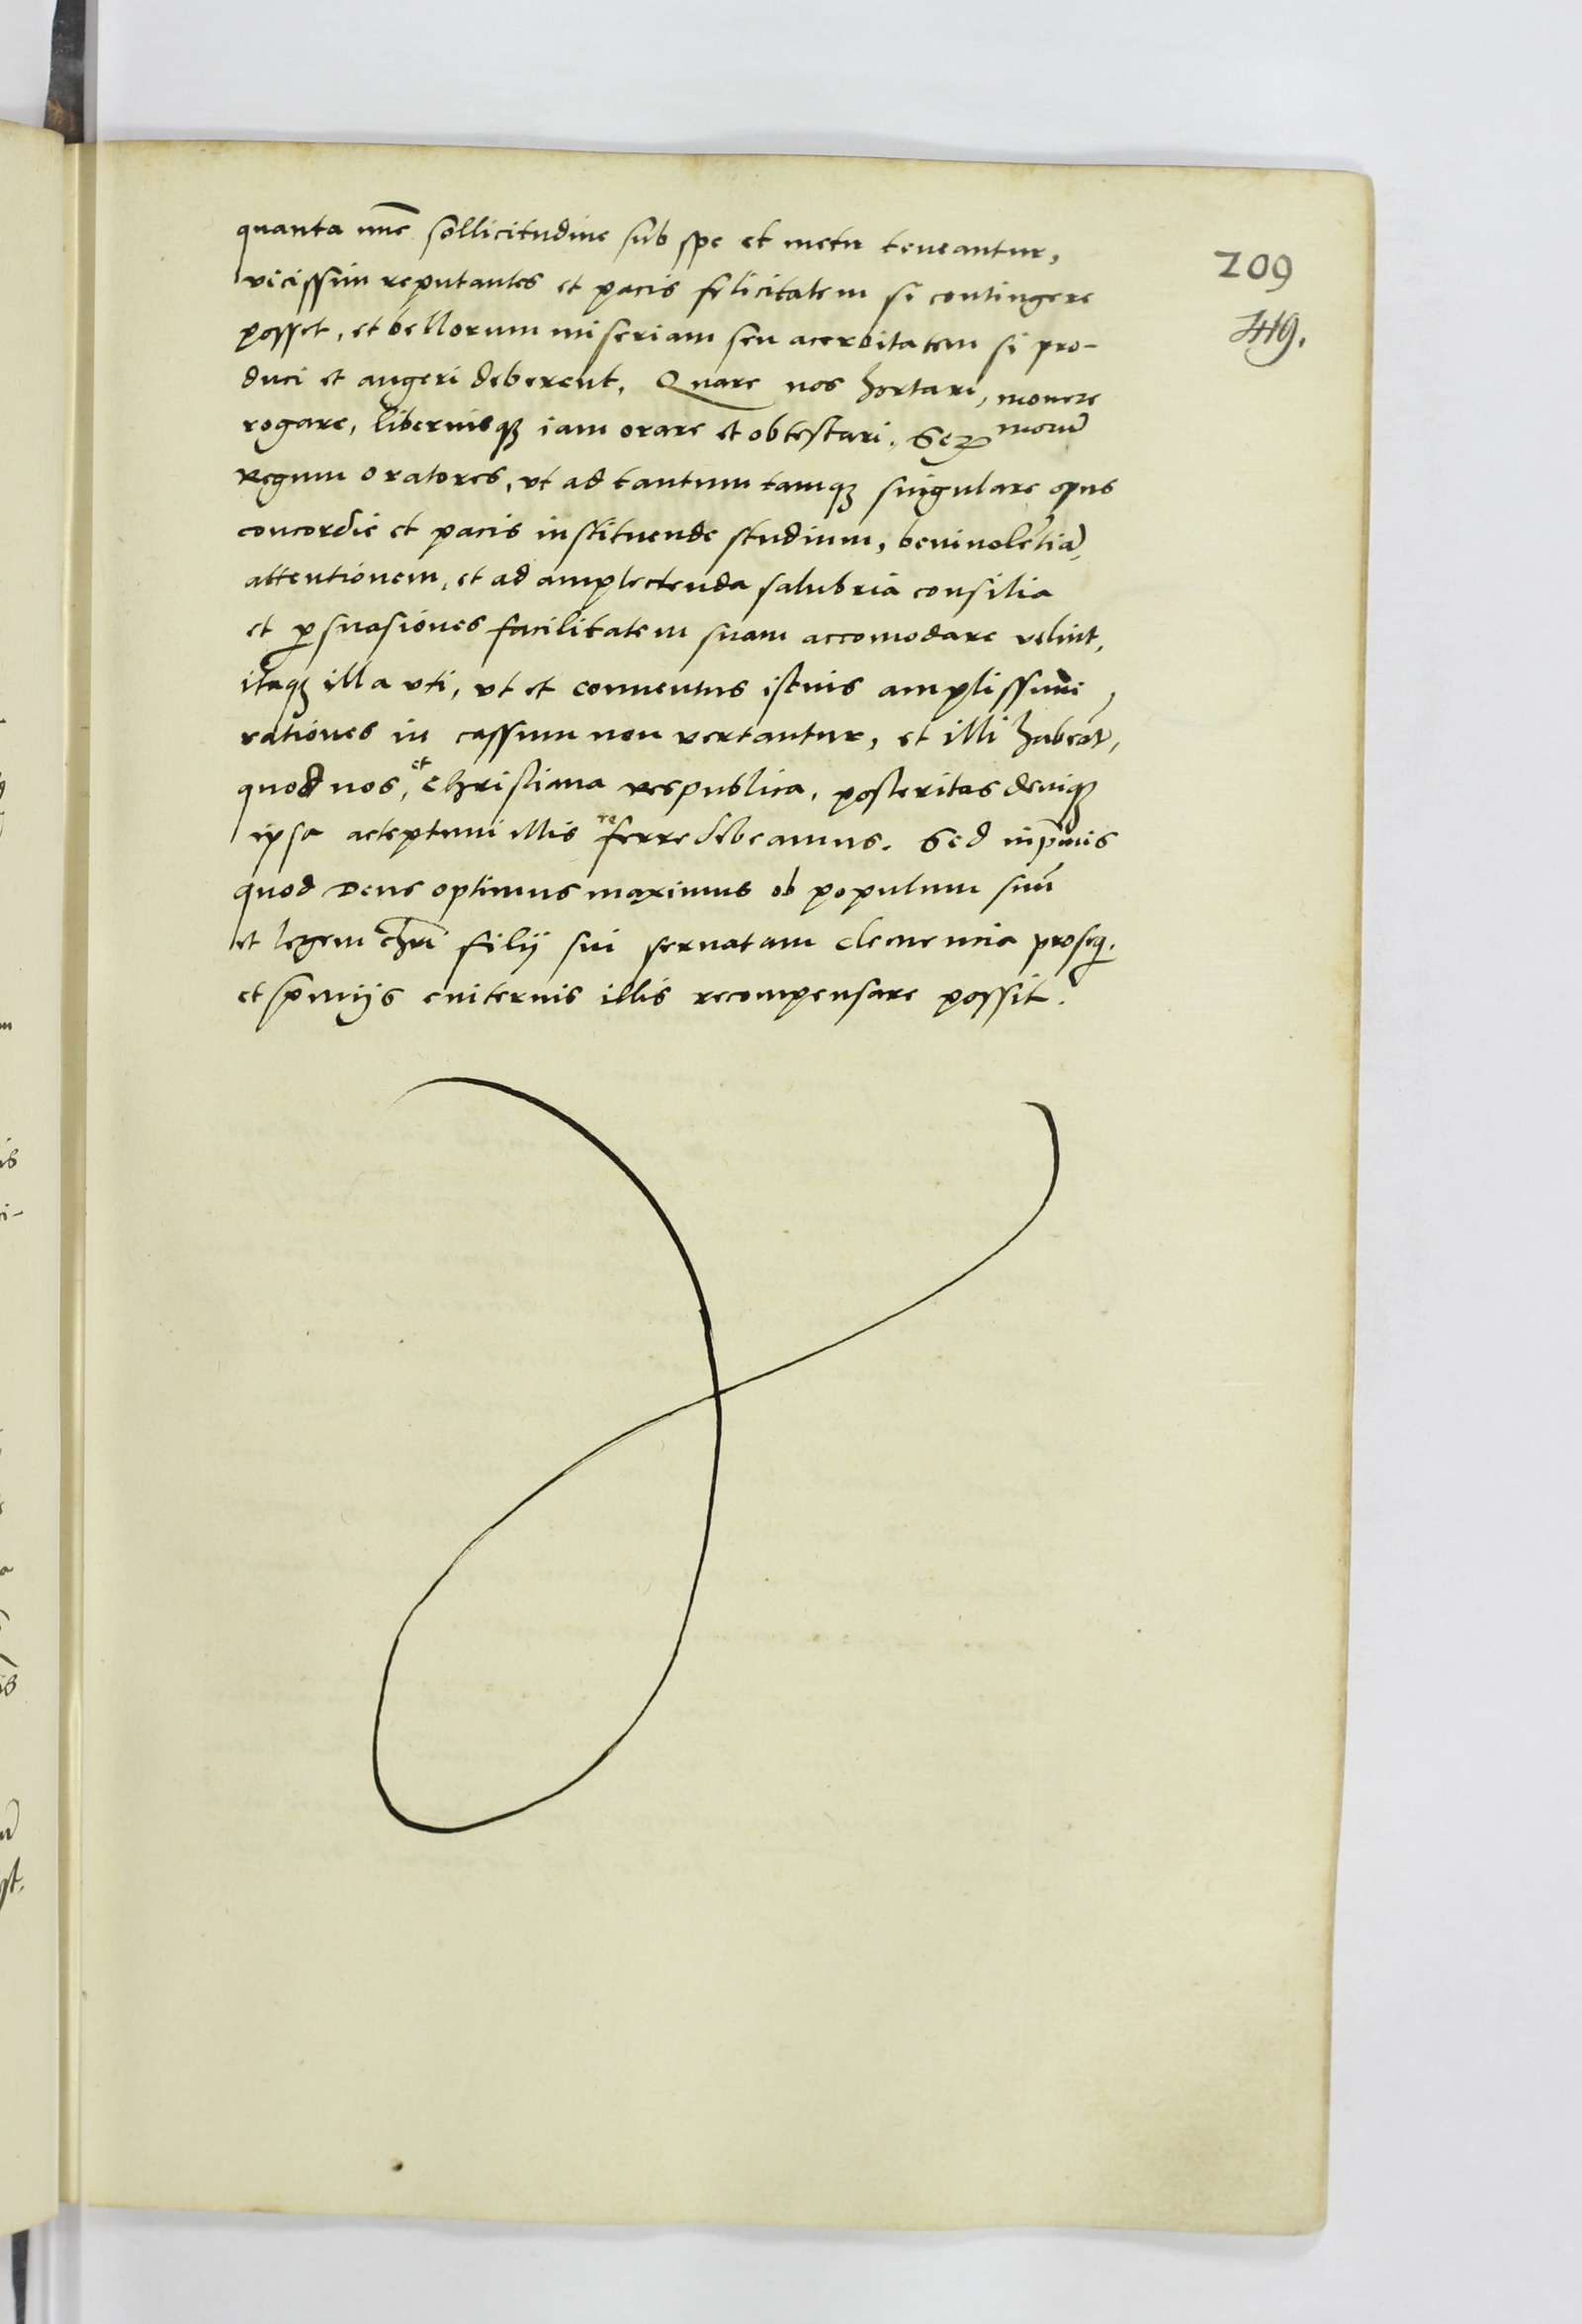 quanta nuc̄ sollicitudine sub spe et metu teneantur,
vicissim reputantes et pacis felicitatem si contingere
posset, et bellorum miseriam seu acerbitatem si pro-
duci et augeri deberent. Quare nos hortari, monere
rogare, liberiusqꝫ iam orare et obtestari. Seꝝ morū
regum oratores, vt ad tantum tamqꝫ singulare opus
concordie et pacis instituende studium, beniuolētiā,
attentionem, et ad amplectenda salubria consilia
et ꝑsuasiones facilitatem suam accomodare velint,
itaqꝫ illa vti, vt et conuentus istius amplissimi
rationes in cassum non vertantur, et illi habeāt,
quod nos, et christiana respublica, posteritas deniqꝫ
ipsa acceptum illis referre debeamus. Sed inp̄mis
quod Deus optimus maximus ob populum suū
et legem chr̄i filij sui seruatam clemencia proseq̄.
et p̄mijs euiternis illis recompensare possit.
209
419.